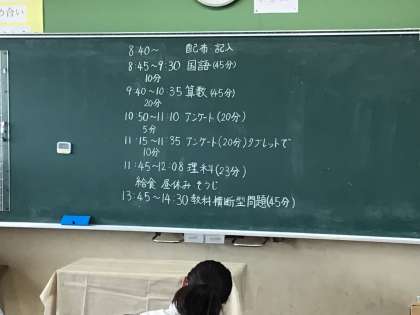 め合い
8:40～ 配布 記入
8:45～9:30 国語(45分)
10分
9:40～10:35 算数(45分)
20分
10:50～11:10 アンケート(20分)
5分
11:15～11:35 アンケート(20分)タブレットで
10分
11:45～12:08 理科(23分)
給食 昼休み そうじ
13:45～14:30 教科横断型問題(45分)